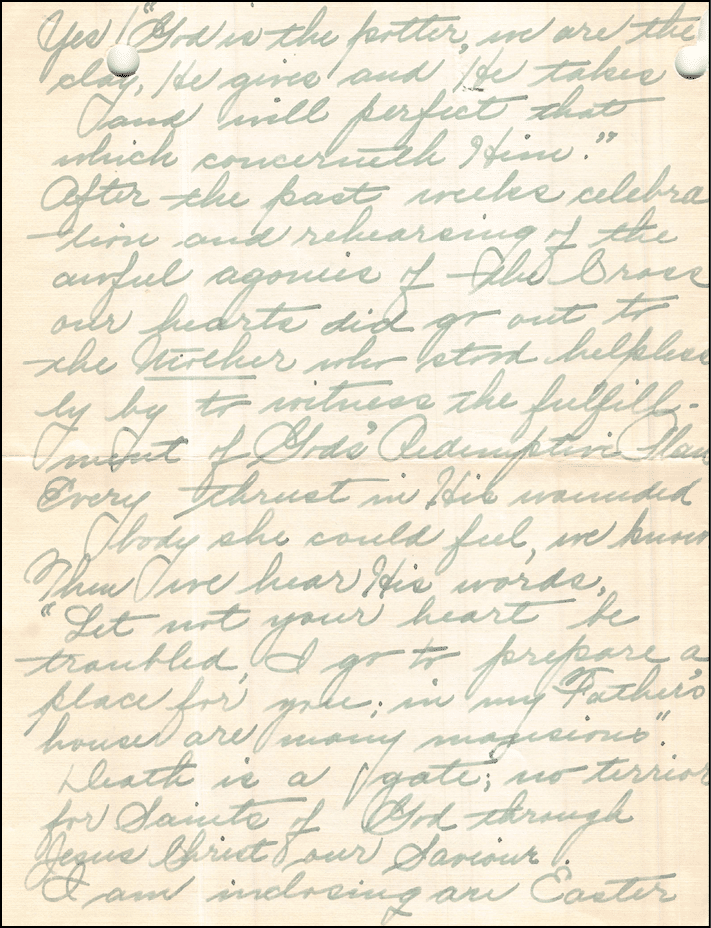 Yes! "God is the potter, we are the
clay, He gives and He takes
and will perfect that
which concerneth Him."
After the past weeks celebra
-tion and rehearsing of the
awful agonies of The Cross
our hearts did go out to
the Mother who stood helpless
ly by to witness the fulfill-
ment of Gods' Redemptive Plan
Every thrust in His wounded
body she could feel, we know
Then we hear His words,
"Let not your heart be
troubled, I go to prepare a
place for you; in my Father's
house are many mansions".
Death is a gate; no terrior
for Saints of God through
Jesus Christ our Saviour.
I am inclosing are Easter